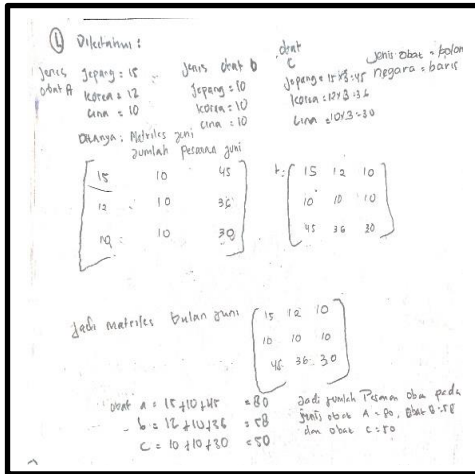 ① Diketahui :
Jenis obat A Jepang = 15
Korea = 12
Cina = 10
Jenis obat b
Jepang = 10
Korea = 10
Cina = 10
obat C
Jepang = 15x3 = 45
Korea = 12x3 = 36
Cina = 10x3 = 30
Jenis obat = kolom
negara = baris
Ditanya : Matriks juni
Jumlah Pesanan juni
15 10 45
12 10 36
10 10 30
t = 15 12 10
10 10 10
45 36 30
Jadi Matriks bulan juni
15 12 10
10 10 10
45 36 30
obat a = 15+10+45 = 80
b = 12+10+36 = 58
c = 10+10+30 = 50
Jadi jumlah Pesanan obat pada
jenis obat A = 80, obat B = 58
dan obat C = 50